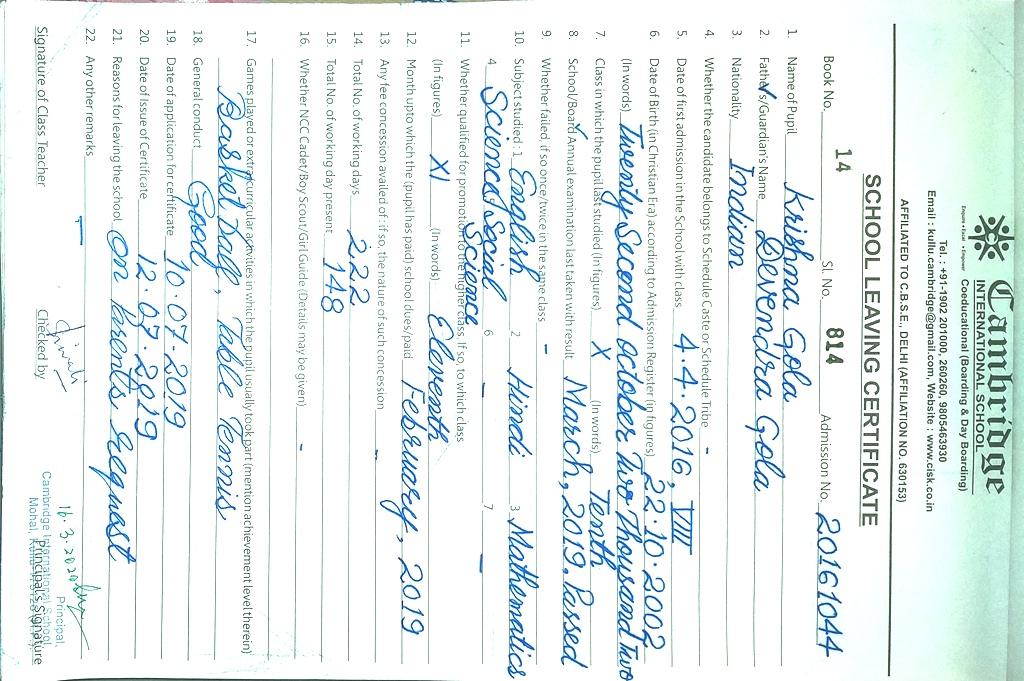 Cambridge
INTERNATIONAL SCHOOL
Enquire • Excel • Empower
Coeducational (Boarding & Day Boarding)
Tel. : +91-1902 201000, 260260, 9805463930
Email : kullu.cambridge@gmail.com, Website : www.cisk.co.in
AFFILIATED TO C.B.S.E., DELHI (AFFILIATION NO. 630153)
SCHOOL LEAVING CERTIFICATE
Book No. 14 Sl. No. 814 Admission No. 20161044
1. Name of Pupil Krishna Gola
2. Father's/Guardian's Name Devendra Gola
3. Nationality Indian
4. Whether the candidate belongs to Schedule Caste or Schedule Tribe -
5. Date of first admission in the School with class 4.4.2016, VIII
6. Date of Birth (in Christian Era) according to Admission Register (in figures) 22.10.2002
(In words) Twenty Second october Two Thousand Two
7. Class in which the pupil last studied (In figures) X (In words) Tenth
8. School/Board Annual examination last taken with result March, 2019, Passed
9. Whether failed, if so once/twice in the same class -
10. Subject studied : 1 English 2 Hindi 3 Mathematics
4 Science 5 Social Science 6 - 7 -
11. Whether qualified for promotion to the higher class. If so, to which class
(In figures) XI (In words) Eleventh
12. Month upto which the (pupil has paid) school dues/paid February, 2019
13. Any fee concession availed of : if so, the nature of such concession -
14. Total No. of working days 222
15. Total No. of working day present 148
16. Whether NCC Cadet/Boy Scout/Girl Guide (Details may be given) -
17. Games played or extra curricular activities in which the pupil usually took part (mention achievement level therein)
Basket Ball, Table Tennis
18. General conduct Good
19. Date of application for certificate 10.07.2019
20. Date of Issue of Certificate 12.07.2019
21. Reasons for leaving the school On Parents request
22. Any other remarks -
16.3.2020
Signature of Class Teacher Checked by Principal's Signature
Principal,
Cambridge International School,
Mohal,